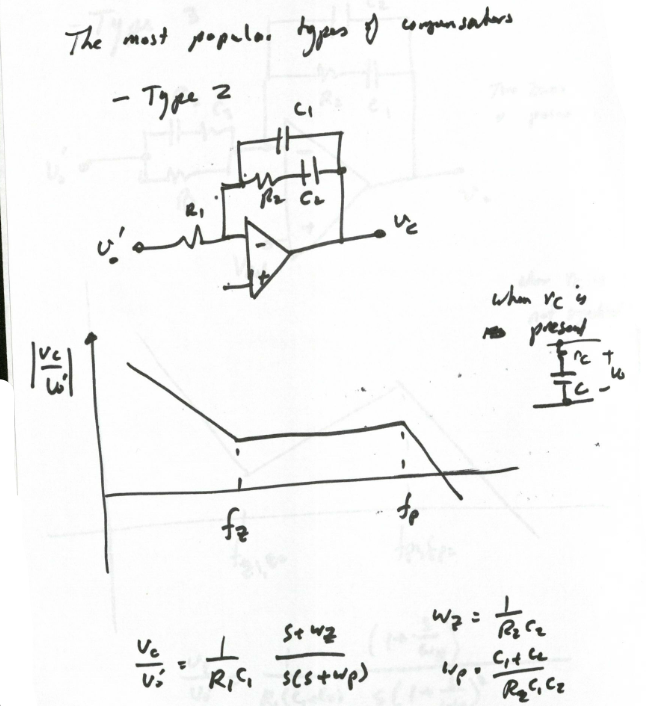 The most popular types of compensators
- Type 2
C1
R2 C2
R1
vo'
vc
-
+
when rc is
present
rc +
C - vo
|vc/vo'|
fz
fp
vc/vo' = 1/(R1C1) (s+wz)/(s(s+wp))
wz = 1/(R2C2)
wp = (C1+C2)/(R2C1C2)